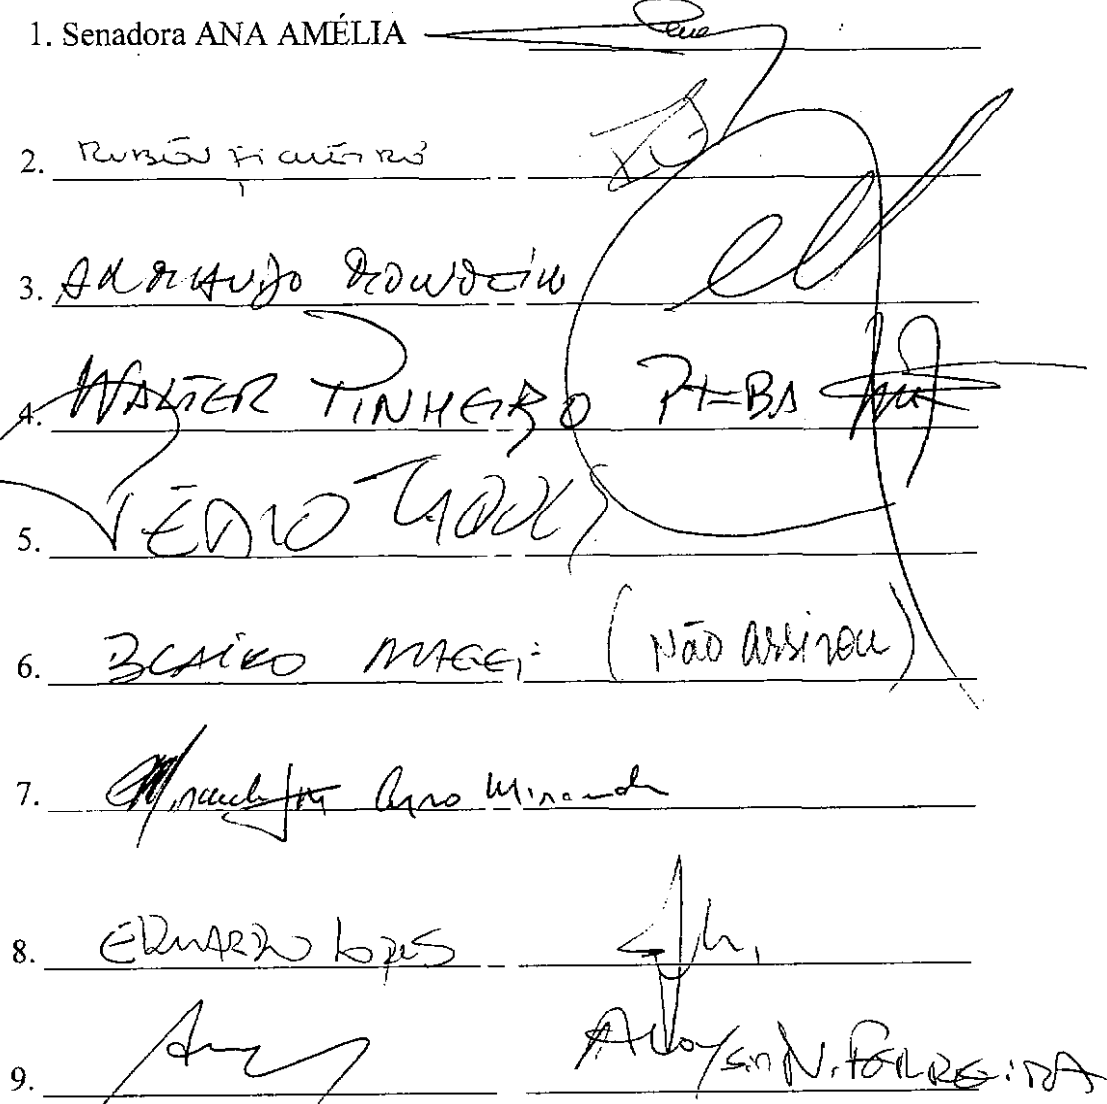 1. Senadora ANA AMÉLIA
2. RUBEN FIGUEIRÓ
3.
4. WALTER PINHEIRO PT-BA
5. PEDRO TAQUES
6. BLAIRO MAGGI (Não assinou)
7. Cyro Miranda
8. EDUARDO LOPES
9. ALOYSIO N. FERREIRA